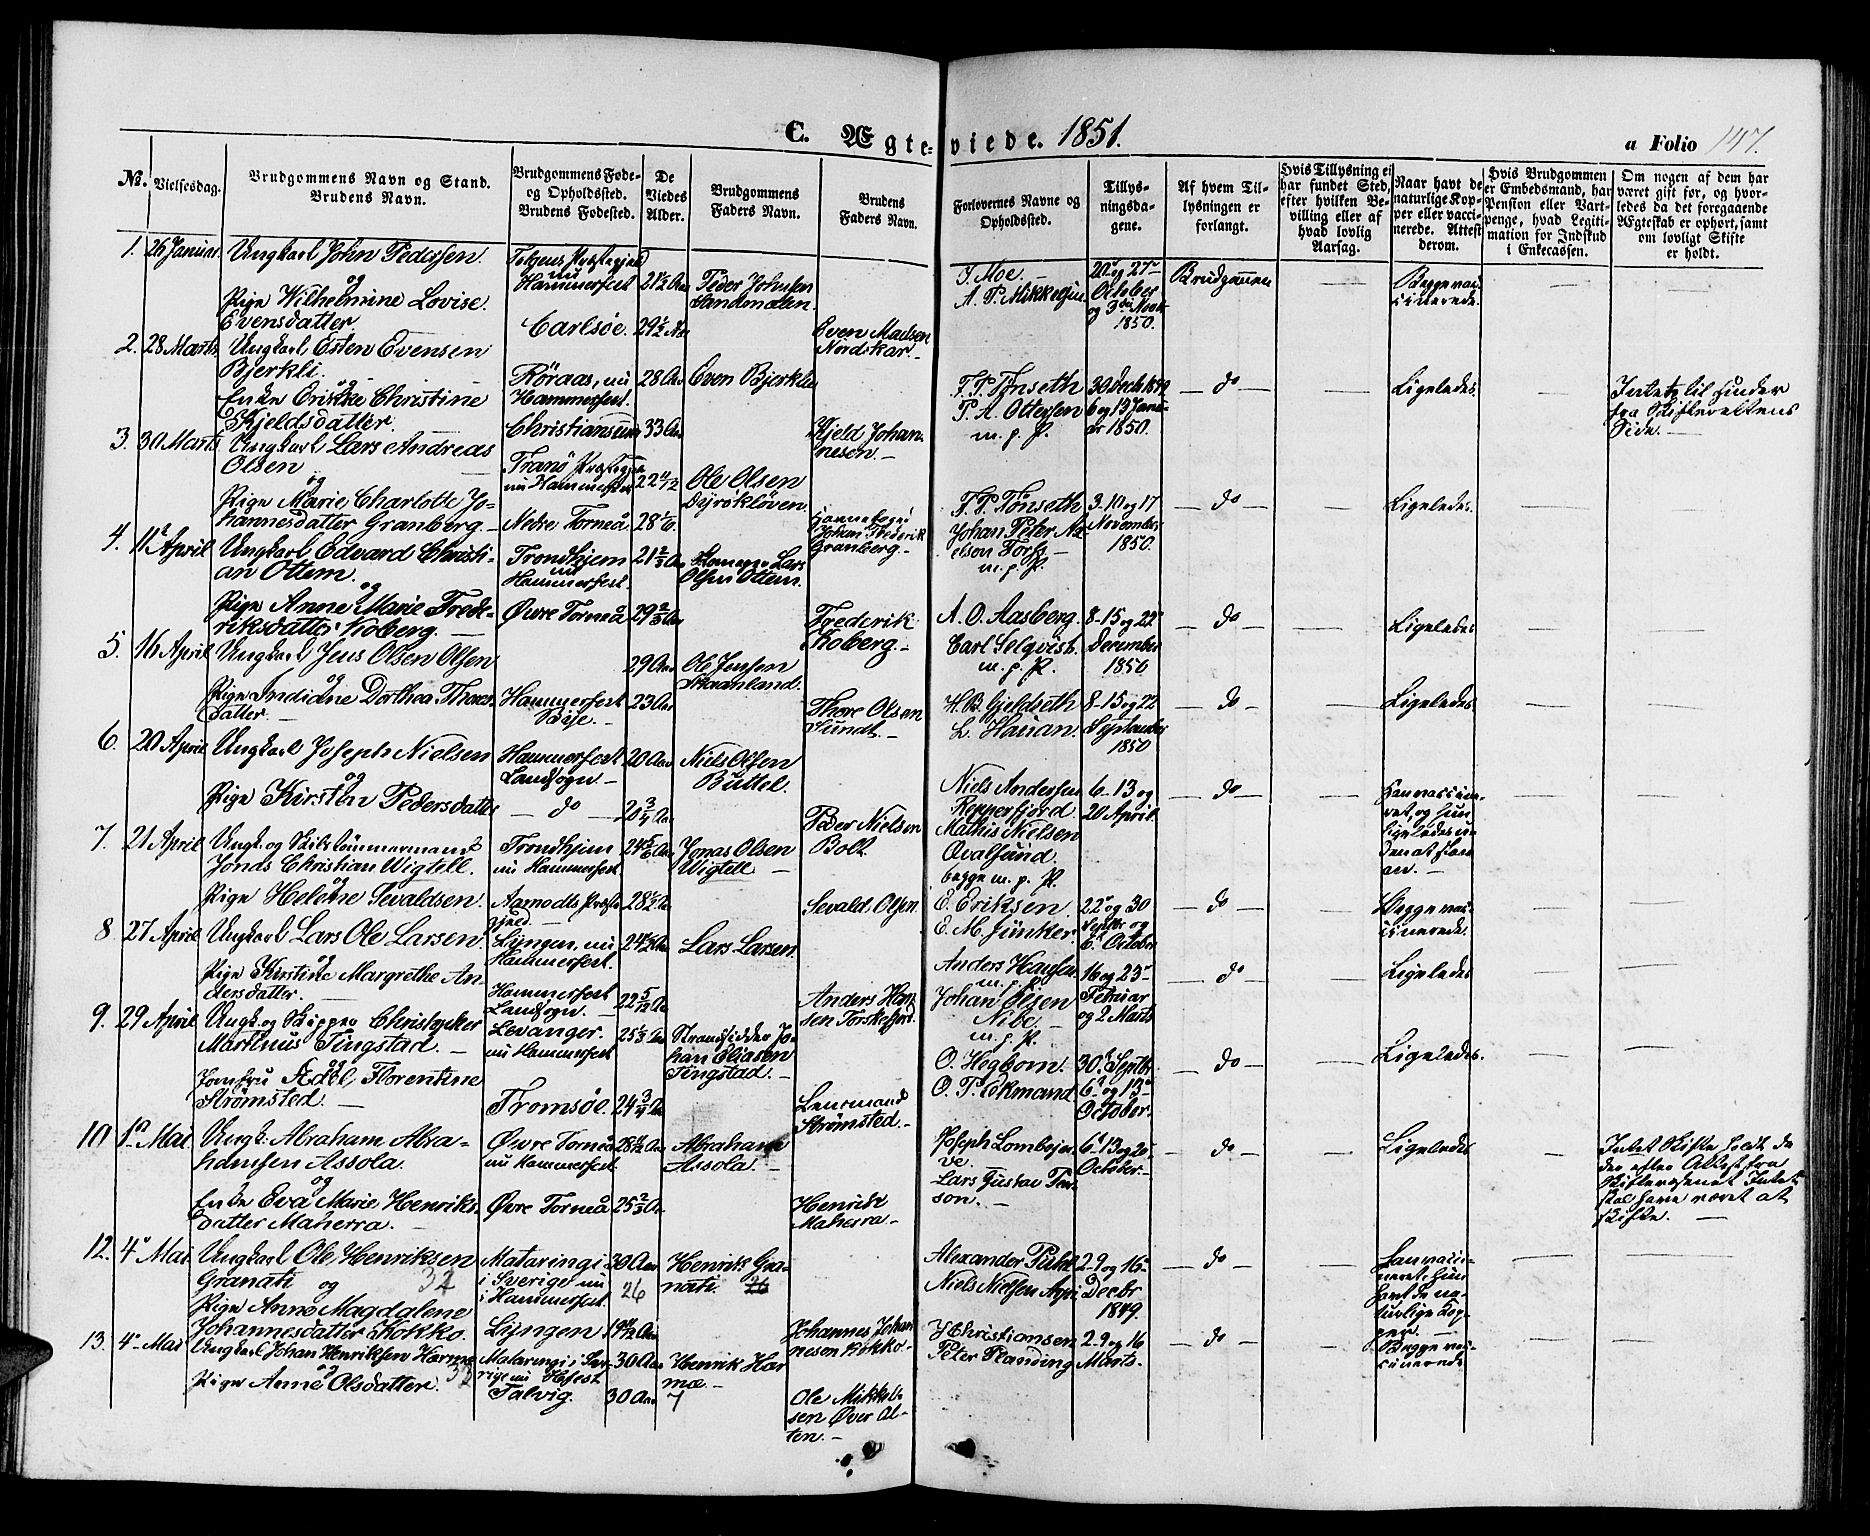 C. Ægte-viede. 1851.
a Folio 147.
No.
Vielsesdag.
Brudgommens Navn og Stand.
Brudens Navn.
Brudgommens Føde-
og Opholdssted.
Brudens Fødested.
De
Viedes
Alder.
Brudgommens
Faders Navn.
Brudens
Faders Navn.
Forlovernes Navne og
Opholdssted.
Tillys-
ningsda-
gene.
Af hvem Til-
lysningen er
forlangt.
Hvis Tillysning ei
har fundet Sted,
efter hvilken Be-
villing eller af
hvad lovlig
Aarsag.
Naar havt de
naturlige Kop-
per eller vacci-
nerede. Attest
derom.
Hvis Brudgommen
er Embedsmand, har
Pension eller Vart-
penge, hvad Legiti-
mation for Indskud
i Enkecassen.
Om nogen af dem har
været gift før, og hvor-
ledes da det foregaaende
Ægteskab er ophørt, samt
om lovligt Skifte
er holdt.
1. 26 Januar. Ungkarl John Pedersen.
og
Pige Wilhelmine Lovise
Evensdatter.
nu
Hammerfest
Carlsøe.
21½ Aar
29½ Aar
Peder Johnsen
Sandmoen.
Even Madsen
Nordskar
J. Moe.
A. P. Mikkelsen
20 og 27
October
og 3die Novbr
1850.
Brudgommen
Begge vac-
cinerede.
2. 28 Marts Ungkarl Esten Evensen
Bjerkli.
og
Enke Christine
Kjeldsdatter.
Røraas, nu
Hammerfest.
Christianssund
28 Aar
33 Aar
Even Bjerkli
Kjeld Johan-
nesen.
F. P. Tønseth
P. A. Ottersen
m. p. P.
30 Decb 1849
6 og 13 Janu-
ar 1850.
do
Ligeledes.
Intet til Hinder
fra Skifterettens
Side.
3. 30 Marts Ungkarl Lars Andreas
Olsen
og
Pige Marie Charlotte Jo-
hannesdatter Granberg.
Tranø Præstegjeld
nu Hammerfest
Nedre Torneå
Ole Olsen
Dyrøkløven.
Johan Frederik
Granberg.
F. P. Tønseth
Johan Peter
m. p. P.
3. 10 og 17
November
1850.
do
Ligeledes.
4. 11te April Ungkarl Edvard Christi-
an Ottem.
og
Pige Anne Marie Frede-
riksdatter Koberg.
Trondhjem
nu
Hammerfest.
Øvre Torneå
21⅔ Aar
29⅔ Aar
Lars
Olsen Ottem.
Frederik
Koberg.
A. O. Aasberg.
Carl Selqvist.
m. p. P.
8-15 og 22
December
1850
do
Ligeledes
5. 16 April Ungkarl Jens Olsen Olsen
og
Pige Indiane Dorthea Thores-
datter.
Hammerfest
Bye.
29 Aar
23 Aar
Ole Jensen
Skaanland.
Thore Olsen
Sundt.
H. B. Gjeldseth
L. Hasian.
8-15 og 22
September
1850
do
Ligeledes.
6. 20 April Ungkarl Joseph Nielsen
og
Pige Kirsten Pedersdatter
Hammerfest
Landsogn
do
20 Aar
20¾ Aar
Niels Olsen
Buttel.
Peder Nielsen
Bolt.
Niels Andersen
Repperfjord
Mathis Nielsen
Qvalsund.
begge m. p. P.
6. 13 og
20 April.
do
7. 21 April Ungk. og Skibstømmermand
Jonas Christian Wigtell.
og
Pige Helene Sevaldsen.
Trondhjem
nu Hammerfest
24⅚ Aar
28½ Aar
Jonas Olsen
Wigtell
Sevald Olsen.
E. Eriksen
E. M. Junker.
22 og 30
Septbr og
6 October
do
Begge vac-
cinerede.
8. 27 April Ungkarl Lars Ole Larsen
og
Pige Kirstine Margrethe An-
dersdatter.
Lyngen, nu
Hammerfest.
Hammerfest
Landsogn.
22 5/12 Aar
Lars Larsen
Anders Han-
sen Torskefjord.
Anders
m. p. P.
Johan Olsen
m. p. P.
16 og 23
Februar
og 2 Marts
do
Ligeledes
9. 29 April Ungk. og Skipper Christopher
Martinus Tingstad.
og
Jomfru Adel Florentine
Strømsted.
Levanger.
nu Hammerfest
Tromsøe.
24¾ Aar
Strandsidder Jo-
han Eliasen
Tingstad.
Lensmand
Strømsted.
O. Hegborn.
O. P. Eckmand
30 Septbr
6 og 13
October.
do
Ligeledes.
10 1ste Mai Ungk. Abraham Abra-
hamsen Assola.
og
Enke Eva Marie Henriks-
datter Maherra.
Øvre Torneå
nu Hammerfest.
Øvre Torneå
25⅔ Aar
Abraham
Assola
Henrik
Maherra
Joseph
Lars Gustav
6 13 og 20
October.
do
Ligeledes
Intet Skifte holdt da
der efter Attest fra
Skifterettens Intet
skal have været at
skifte.
12. 4 Mai Ungkarl Ole Henriksen
Granati og
32
Pige Anne Magdalene
Johannesdatter Kokko.
Mataringi
i Sverige nu
i Hammerfest.
Lyngen
30 Aar
26
Henrik Gra-
nati. 26
Johannes Johan-
nesen Kokko
Alexander
Niels Nielsen
2. 9 og 16
Decbr
1849.
do
Han vacci-
neret, hun
havt de na-
turlige Kop-
per.
13. 4 Mai Ungkarl Johan Henriksen Harmæ
og
Pige Anne Olsdatter. 32
Mataringi i Sve-
rige nu Hfest
Talvig.
30 Aar
30 Aar 7
Henrik Har-
mæ.
Ole Mikkel-
sen Øver Al-
ten.
J. Christiansen
Peter
2. 9 og 16
Marts.
do
Begge vac-
cinerede